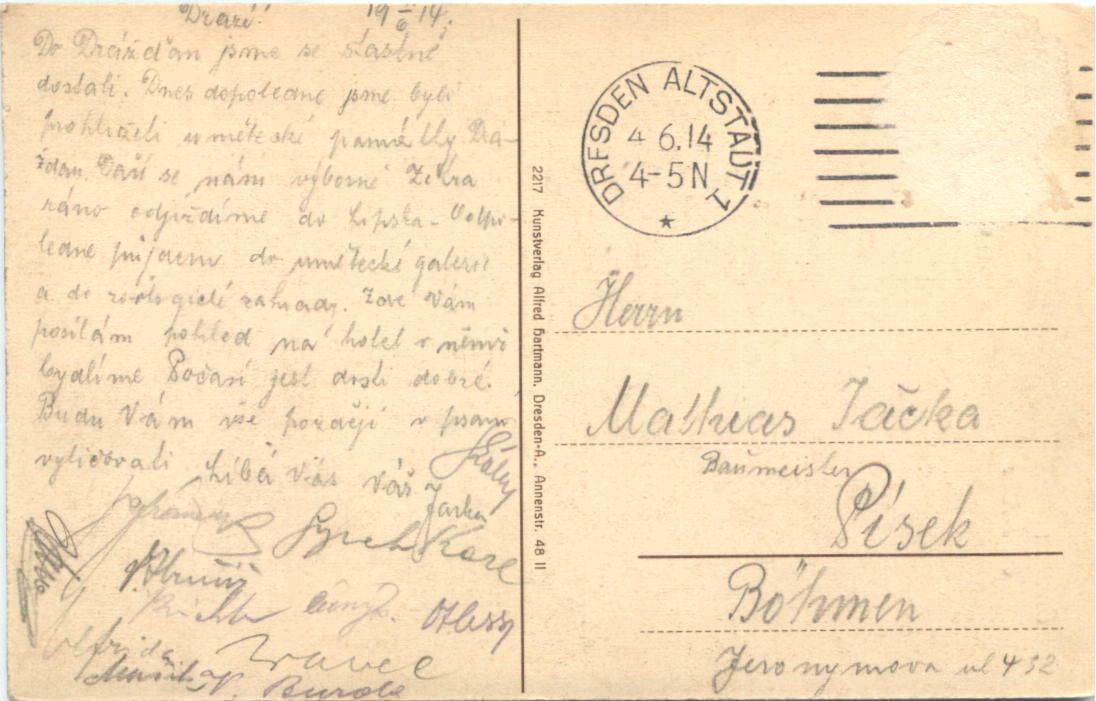 Drazí! 19 4/6 14.
Do Drážďan jsme se šťastně
dostali. Dnes dopoledne jsme byli
prohlíželi umělecké památky Drá-
žďan. Daří se nám výborně Zítra
ráno odjíždíme do Lipska. Odpo-
ledne půjdem do umělecké galerie
a do zoologické zahrady. Zde Vám
posílám pohled na hotel v němž
bydlíme Počasí jest dosti dobré.
Budu Vám vše později v psaní
vyličovati Líbá Vás Váš
Jarka
V. Burda
2217 Kunstverlag Alfred Hartmann, Dresden-A., Annenstr. 48 II
DRESDEN ALTSTADT 1
4 6.14
4-5 N
Herrn
Mathias Táčka
Baumeister
Písek
Böhmen
Jeronymova ul 432